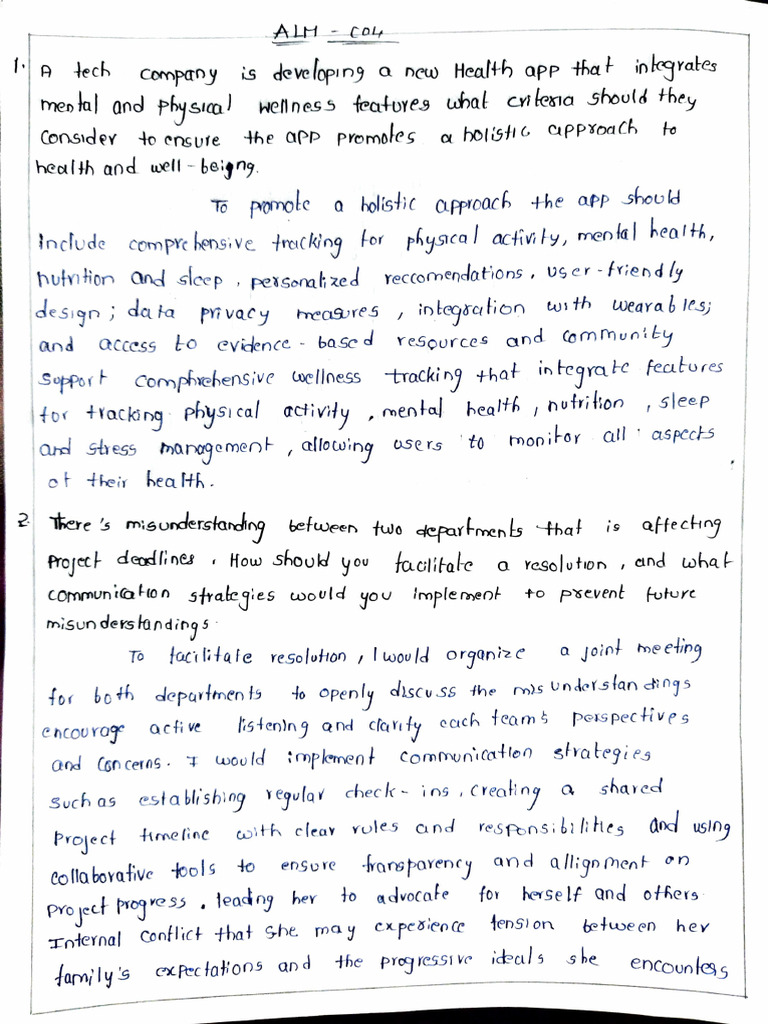 ALM - CO4
1. A tech company is developing a new Health app that integrates
mental and physical wellness features what criteria should they
consider to ensure the app promotes a holistic approach to
health and well-beigng.
To promote a holistic approach the app should
include comprehensive tracking for physical activity, mental health,
nutrition and sleep, personalized reccomendations, user-friendly
design; data privacy measures, integration with wearables;
and access to evidence-based resources and community
support comphrehensive wellness tracking that integrate features
for tracking physical activity, mental health, nutrition, sleep
and stress management, allowing users to monitor all aspects
of their health.
2. There's misunderstanding between two departments that is affecting
project deadlines. How should you facilitate a resolution, and what
communication strategies would you implement to prevent future
misunderstandings.
To facilitate resolution, I would organize a joint meeting
for both departments to openly discuss the misunderstandings
encourage active listening and clarity each team's perspectives
and concerns. I would implement communication strategies
such as establishing regular check-ins, creating a shared
project timeline with clear rules and responsibilities and using
collaborative tools to ensure transparency and allignment on
project progress. leading her to advocate for herself and others
Internal conflict that she may experience tension between her
family's expectations and the progressive ideals she encounters